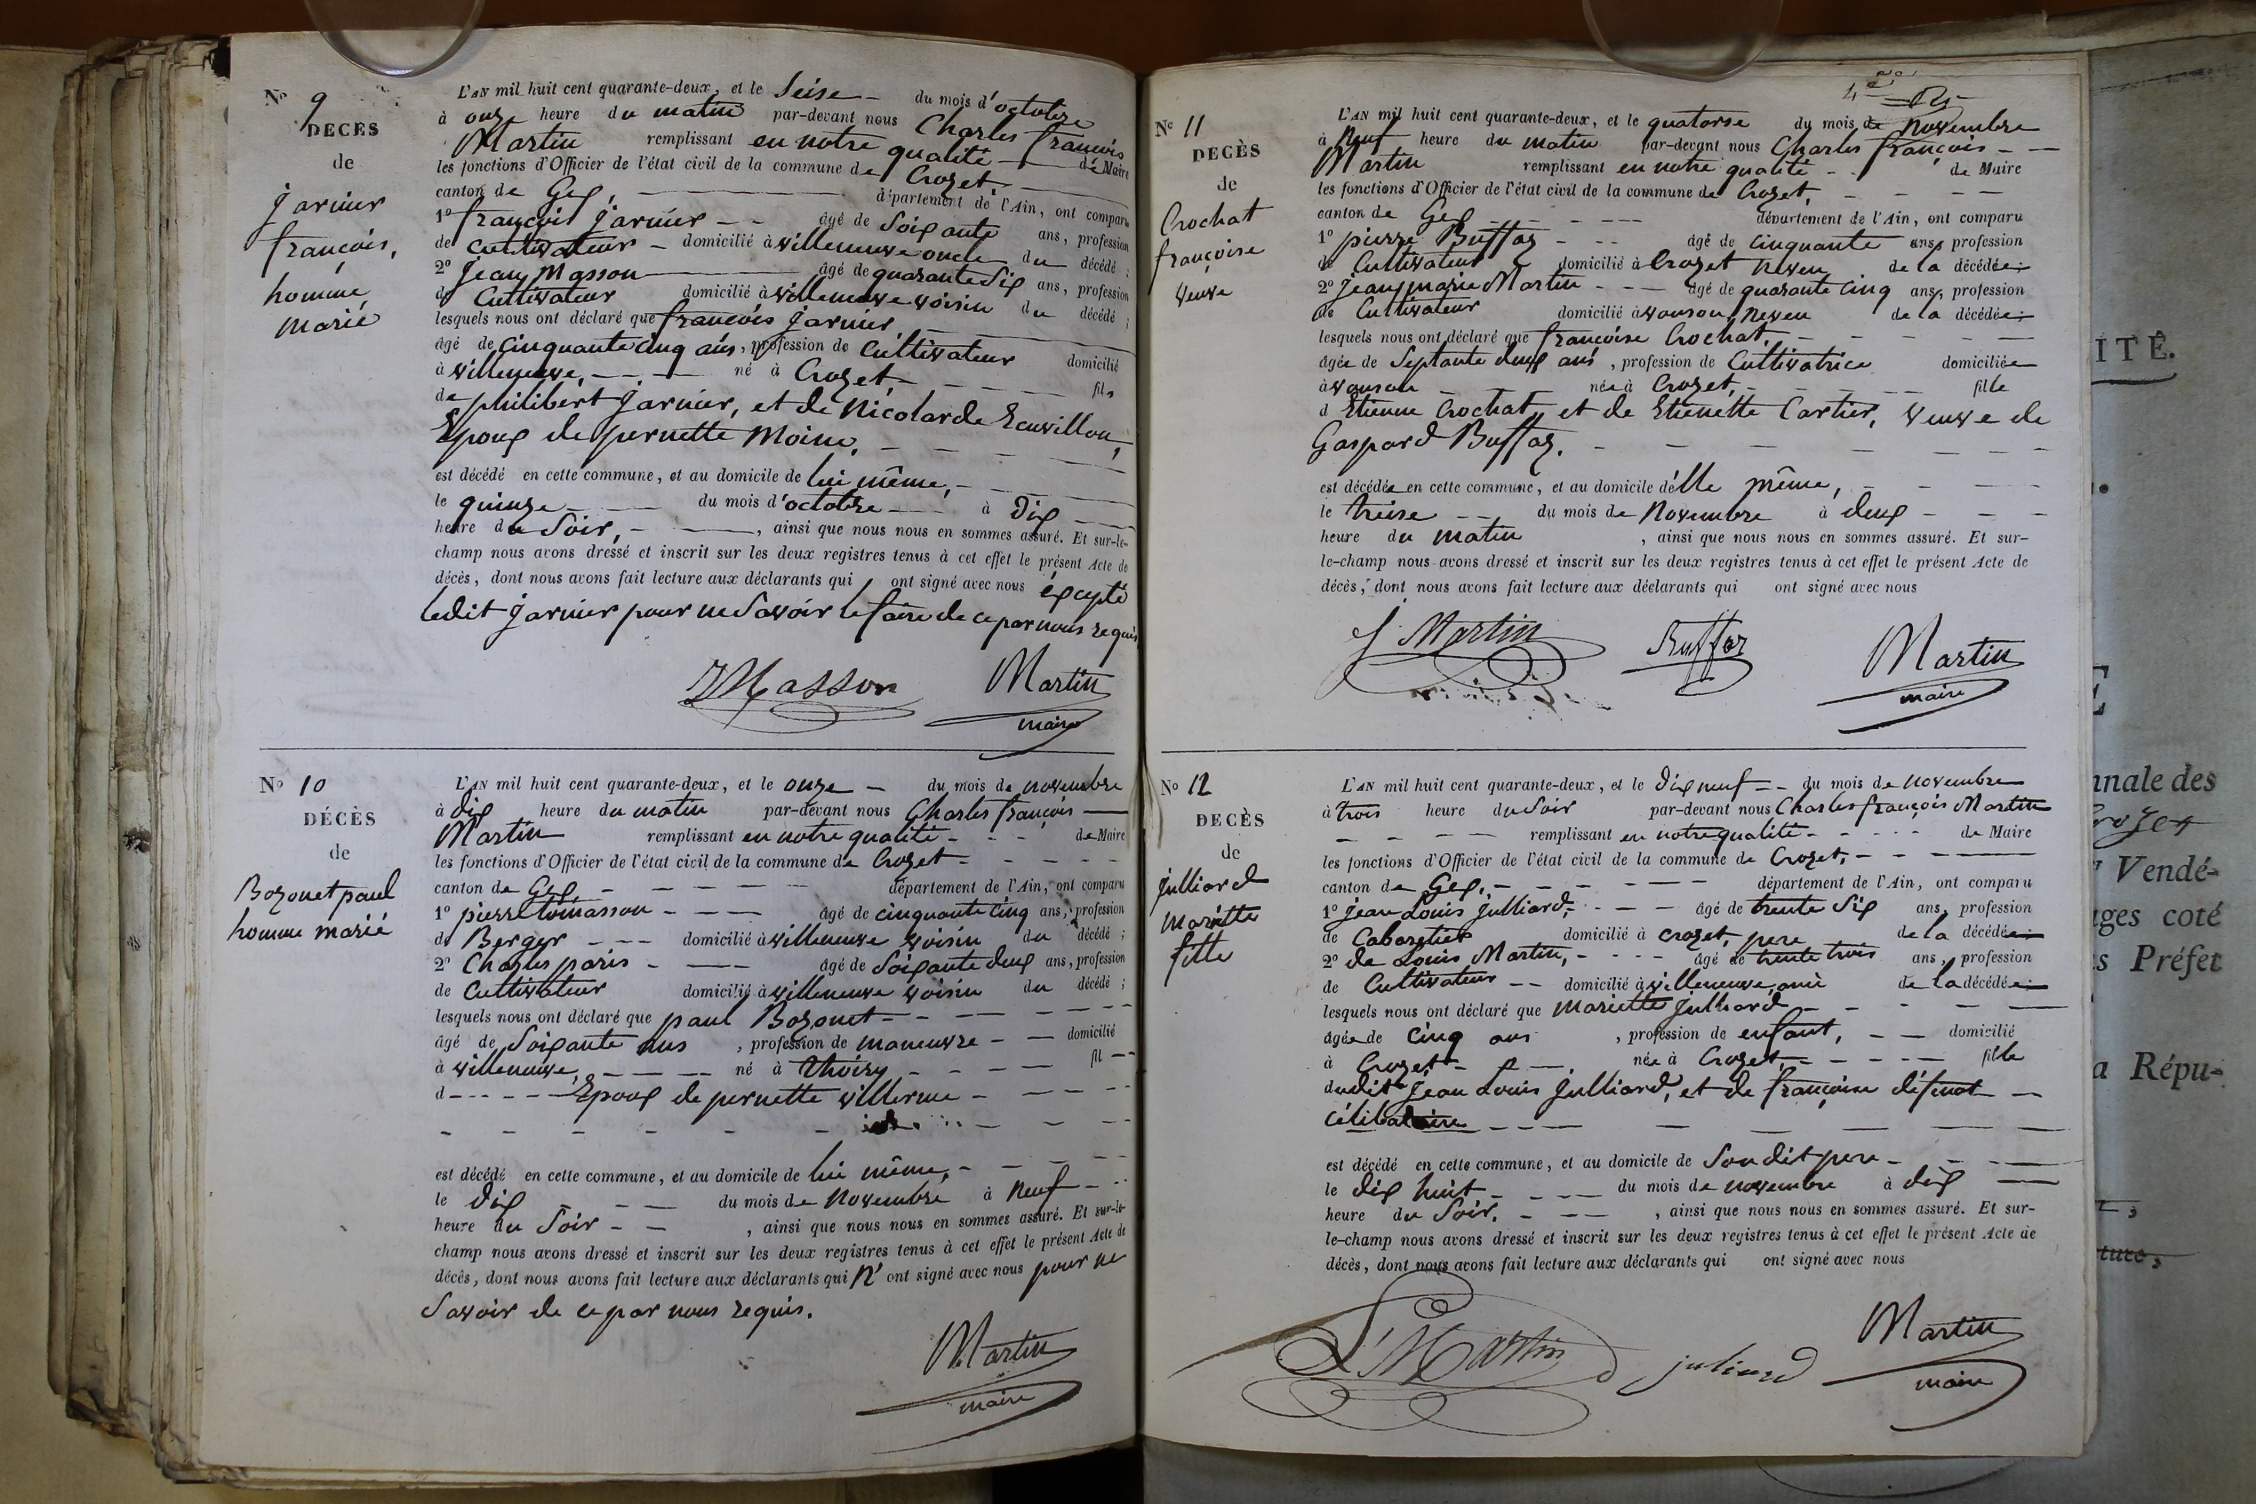 N° 9
DECES
de
Jarnier
françois,
homme
marié
L'AN mil huit cent quarante-deux, et le Seise du mois d'octobre
à onze heure du matin par-devant nous Charles françois
Martin remplissant en notre qualité de Maire
les fonctions d'Officier de l'état civil de la commune de Crozet,
canton de Gex, département de l'Ain, ont comparu
1° françois Jarnier âgé de Soixante ans, profession
de Cultivateur domicilié à villeneuve oncle du décédé ;
2° Jean Masson âgé de quarante Six ans, profession
de Cultivateur domicilié à villeneuve voisin du décédé ;
lesquels nous ont déclaré que françois Jarnier
âgé de Cinquante Cinq ans, profession de Cultivateur domicilié
à villeneuve, né à Crozet, fils
de philibert Jarnier, et de Nicolarde Ecuvillon,
Epoux de pernette Moine,
est décédé en cette commune, et au domicile de lui même,
le quinze du mois d'octobre à Dix
heure du Soir, , ainsi que nous nous en sommes assuré. Et sur-le-
champ nous avons dressé et inscrit sur les deux registres tenus à cet effet le présent Acte de
décès, dont nous avons fait lecture aux déclarants qui ont signé avec nous éxcepté
ledit Jarnier pour ne Savoir le faire de ce par nous requis
JMasson Martin
maire
N° 10
DÉCÈS
de
Bozonet paul
homme marié
L'AN mil huit cent quarante-deux, et le onze du mois de novembre
à dix heure du matin par-devant nous Charles françois
Martin remplissant en notre qualité de Maire
les fonctions d'Officier de l'état civil de la commune de Crozet
canton de Gex département de l'Ain, ont comparu
1° pierre tomasson âgé de cinquante Cinq ans, profession
de Berger domicilié à villeneuve voisin du décédé ;
2° Charles paris âgé de Soixante deux ans, profession
de Cultivateur domicilié à villeneuve voisin du décédé ;
lesquels nous ont déclaré que paul Bozonet
âgé de Soixante ans , profession de maneuvre domicilié
à villeneuve, né à thoiry fil
d Epoux de pernette villerme
est décédé en cette commune, et au domicile de lui même,
le dix du mois de Novembre à neuf
heure du Soir , ainsi que nous nous en sommes assuré. Et sur-le-
champ nous avons dressé et inscrit sur les deux registres tenus à cet effet le présent Acte de
décès, dont nous avons fait lecture aux déclarants qui n' ont signé avec nous pour ne
Savoir de ce par nous requis.
Martin
maire
N° 11
DECÈS
de
Crochat
françoise
veuve
L'AN mil huit cent quarante-deux, et le quatorse du mois de Novembre
à Neuf heure du matin par-devant nous Charles françois
Martin remplissant en notre qualité de Maire
les fonctions d'Officier de l'état civil de la commune de Crozet,
canton de Gex département de l'Ain, ont comparu
1° pierre Buffaz âgé de cinquante ans, profession
de Cultivateur domicilié à Crozet neveu de la décédée
2° Jean marie Martin âgé de quarante Cinq ans, profession
de Cultivateur domicilié à vouson, neveu de la décédée
lesquels nous ont déclaré que françoise Crochat,
âgée de Septante deux ans , profession de Cultivatrice domiciliée
à vouson née à Crozet, fille
d Etienne Crochat, et de Etienette Cartier, veuve de
Gaspard Buffaz.
est décédée en cette commune, et au domicile d'élle même,
le treise du mois de Novembre à deux
heure du matin , ainsi que nous nous en sommes assuré. Et sur-
le-champ nous avons dressé et inscrit sur les deux registres tenus à cet effet le présent Acte de
décès, dont nous avons fait lecture aux déclarants qui ont signé avec nous
J. Martin Buffaz Martin
maire
N° 12
DECÈS
de
julliard
Mariette
fille
L'AN mil huit cent quarante-deux, et le dix neuf du mois de novembre
à trois heure du Soir par-devant nous Charles françois Martin
remplissant en notre qualité de Maire
les fonctions d'Officier de l'état civil de la commune de Crozet,
canton de Gex, département de l'Ain, ont comparu
1° Jean Louis Julliard, âgé de trente Six ans, profession
de Cabaretier domicilié à Crozet, pere de la décédée
2° de Louis Martin, âgé de trente trois ans, profession
de Cultivateur domicilié à villeneuve, ami de la décédée
lesquels nous ont déclaré que Mariette Julliard
âgée de cinq ans , profession de enfant, domicilié
à Crozet née à Crozet, fille
dudit Jean Louis Julliard, et de françoise défenat
Célibataire
est décédé en cette commune, et au domicile de Son dit pere
le dix huit du mois de novembre à dix
heure du Soir, , ainsi que nous nous en sommes assuré. Et sur-
le-champ nous avons dressé et inscrit sur les deux registres tenus à cet effet le présent Acte de
décès, dont nous avons fait lecture aux déclarants qui ont signé avec nous
L. Martin juliard Martin
maire
ITÉ.
nnale des
Crozet
Vendé-
ages coté
s Préfet
a Répu-